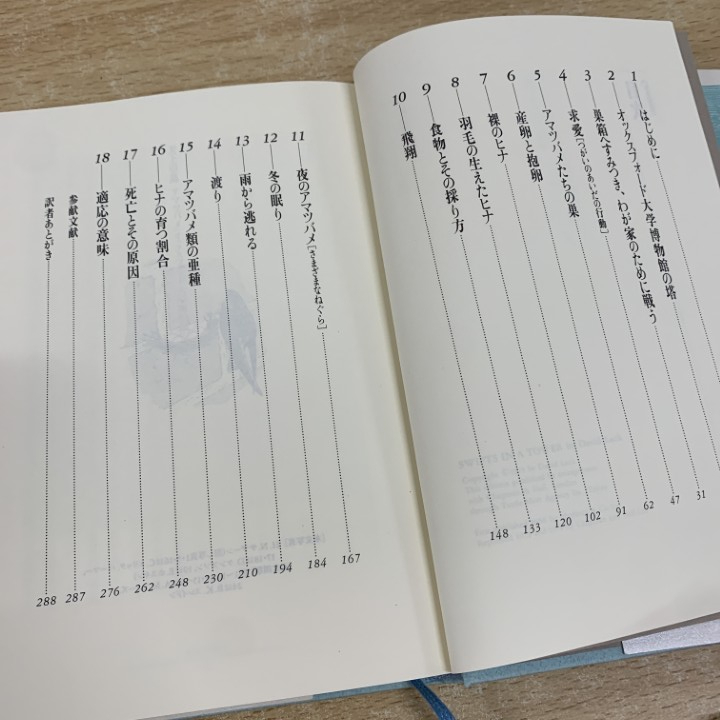 1 はじめに
2 オックスフォード大学博物館の塔
3 巣箱へすみつき、わが家のために戦う 31
4 求愛[つがいのあいだの行動] 47
5 アマツバメたちの巣 62
6 産卵と抱卵 91
7 裸のヒナ 102
8 羽毛の生えたヒナ 120
9 食物とその採り方 133
10 飛翔 148
11 夜のアマツバメ[さまざまなねぐら] 167
12 冬の眠り 184
13 雨から逃れる 194
14 渡り 210
15 アマツバメ類の亜種 230
16 ヒナの育つ割合 248
17 死亡とその原因 262
18 適応の意味 276
参献文献 287
訳者あとがき 288